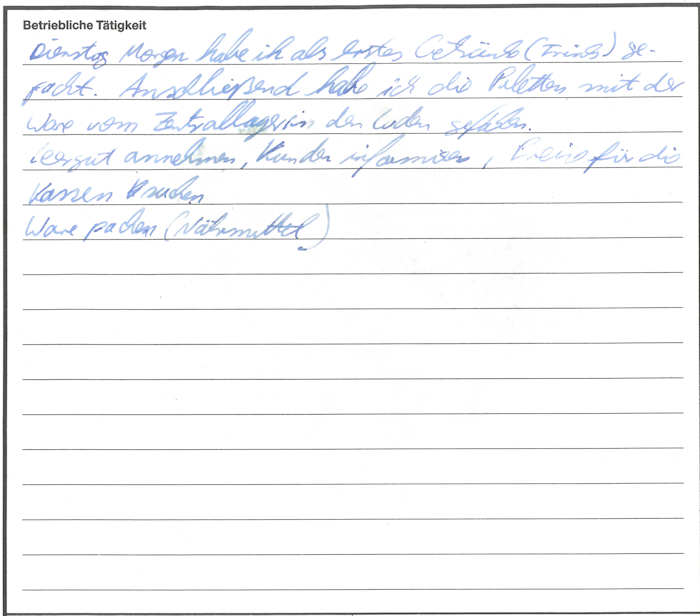 Betriebliche Tätigkeit
Dienstag Morgen habe ich als erstes Getränke (Trinks) ge-
packt. Anschließend habe ich die Paletten mit der
Ware vom Zentrallager in den Laden gefahren.
Leergut annehmen, Kunden informieren, Preise für die
Kassen suchen
Ware packen (Nährmittel)